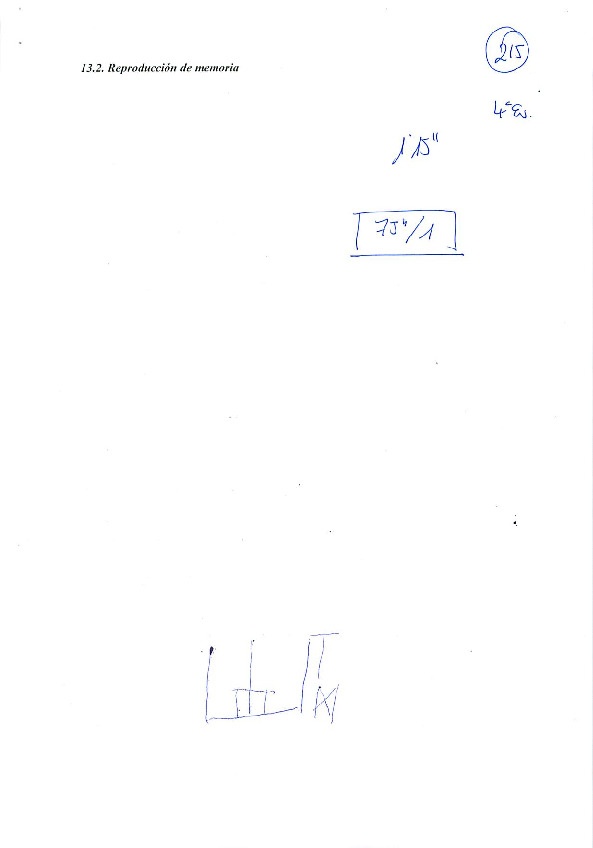 13.2. Reproducción de memoria
215
4º Ev.
1' 15"
75"/1